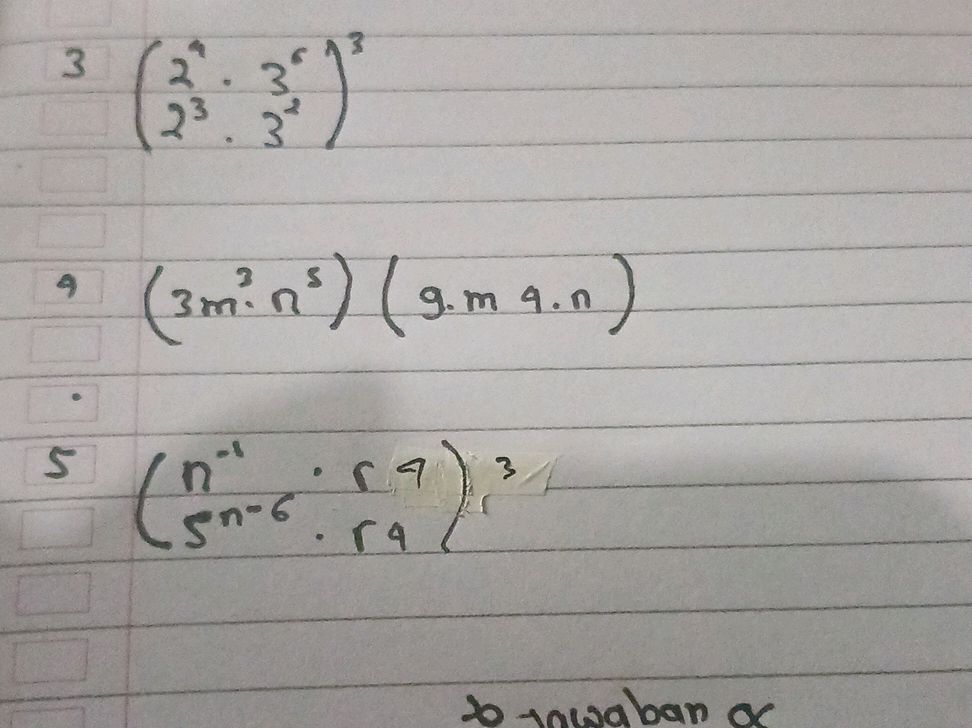 3 (2⁴ . 3⁶)³
2³ . 3²
4 (3m³. n⁵) (9. m 4. n)
.
5 (n⁻¹ . r 4)³
5n-6 . r4
jawaban